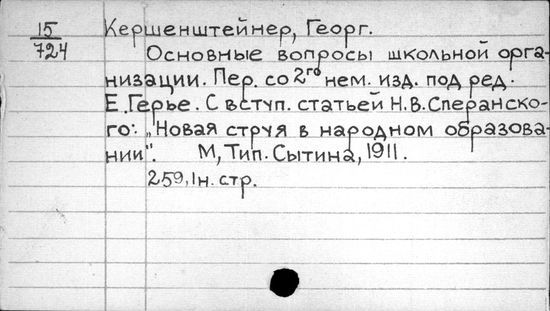 15/724 Кершенштейнер, Георг.
Основные вопросы школьной орга-
низации. Пер. со 2го нем. изд. под ред.
Е. Герье. С вступ. статьей Н.В. Сперанско-
го: „Новая струя в народном образова-
нии". М, Тип. Сытина, 1911.
259, 1н. стр.